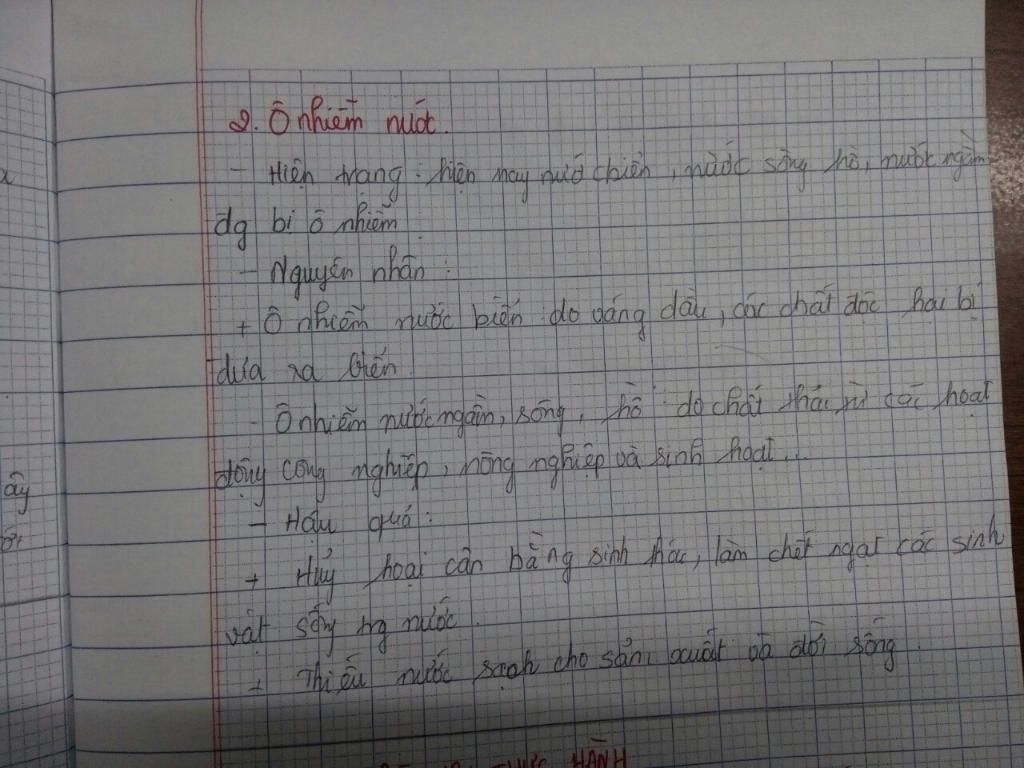 2. Ô nhiễm nước.
- Hiện trạng : hiện nay nướ c biển, nước sông hồ, nước ngầm
đg bị ô nhiễm
- Nguyên nhân :
+ Ô nhiễm nước biển do váng dầu, các chất độc hại bị
đưa ra biển
- Ô nhiễm nước ngầm, sông, hồ : do chất thải từ các hoạt
động công nghiệp, nông nghiệp và sinh hoạt...
- Hậu quả :
+ Hủy hoại cân bằng sinh thái, làm chết ngạt các sinh
vật sống trg nước.
+ Thiếu nước sạch cho sản xuất và đời sống.
ây
THỰC HÀNH